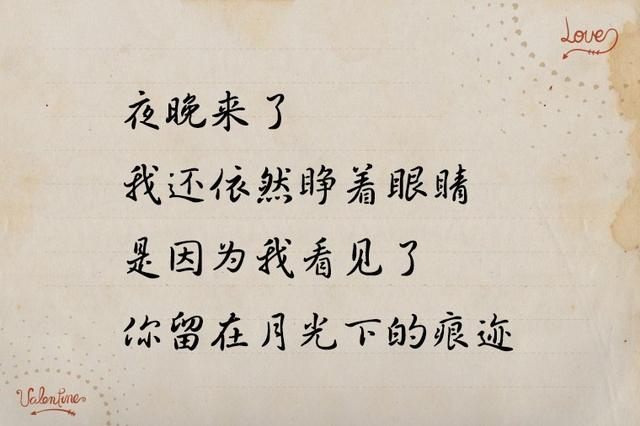 Love
夜晚来了
我还依然睁着眼睛
是因为我看见了
你留在月光下的痕迹
Valentine